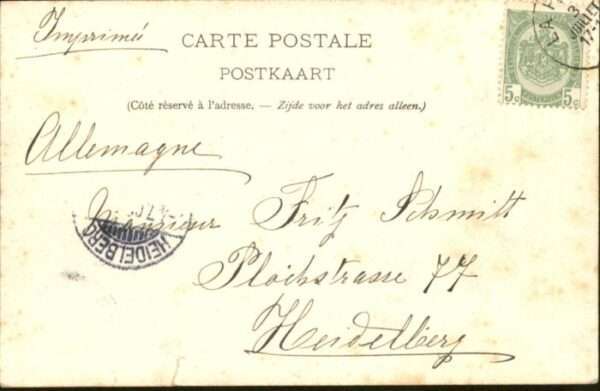 Imprimé
CARTE POSTALE
POSTKAART
(Côté réservé à l'adresse. — Zijde voor het adres alleen.)
5c 5c
JUILLET
Allemagne
Monsieur Fritz Schmitt
HEIDELBERG
Plöckstrasse 77
Heidelberg